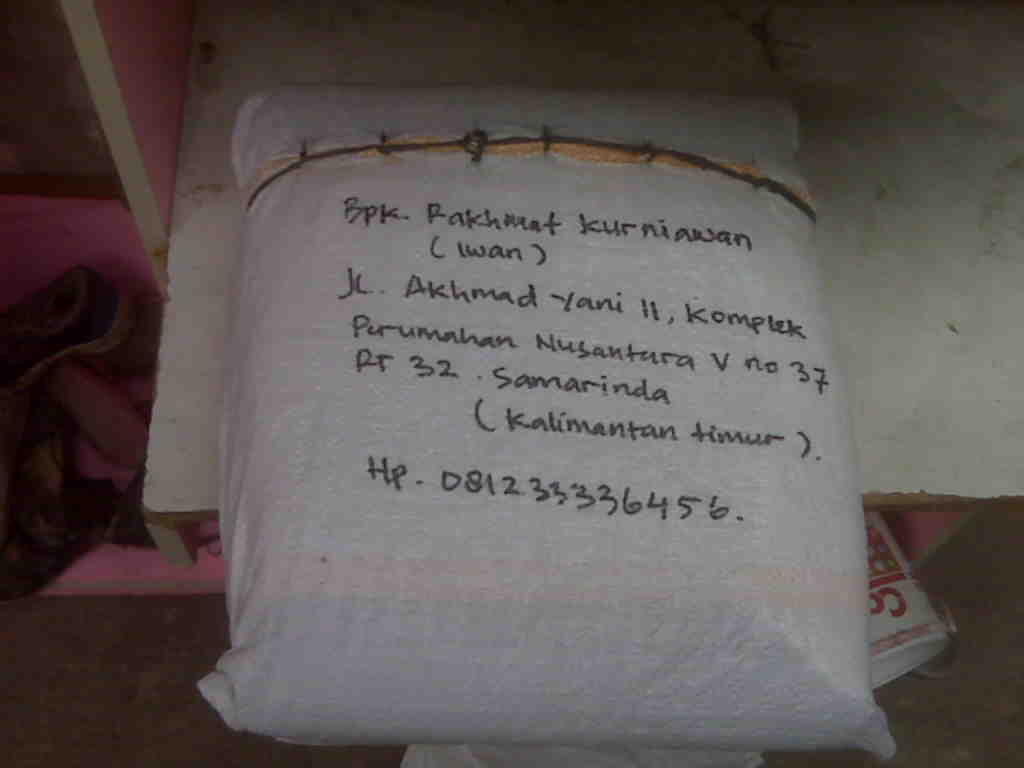 Bpk. Rakhmat Kurniawan
(Iwan)
JL. Akhmad Yani II, Komplek
Perumahan Nusantara V no 37
RT 32 . Samarinda
(Kalimantan timur).
Hp. 081233336456.